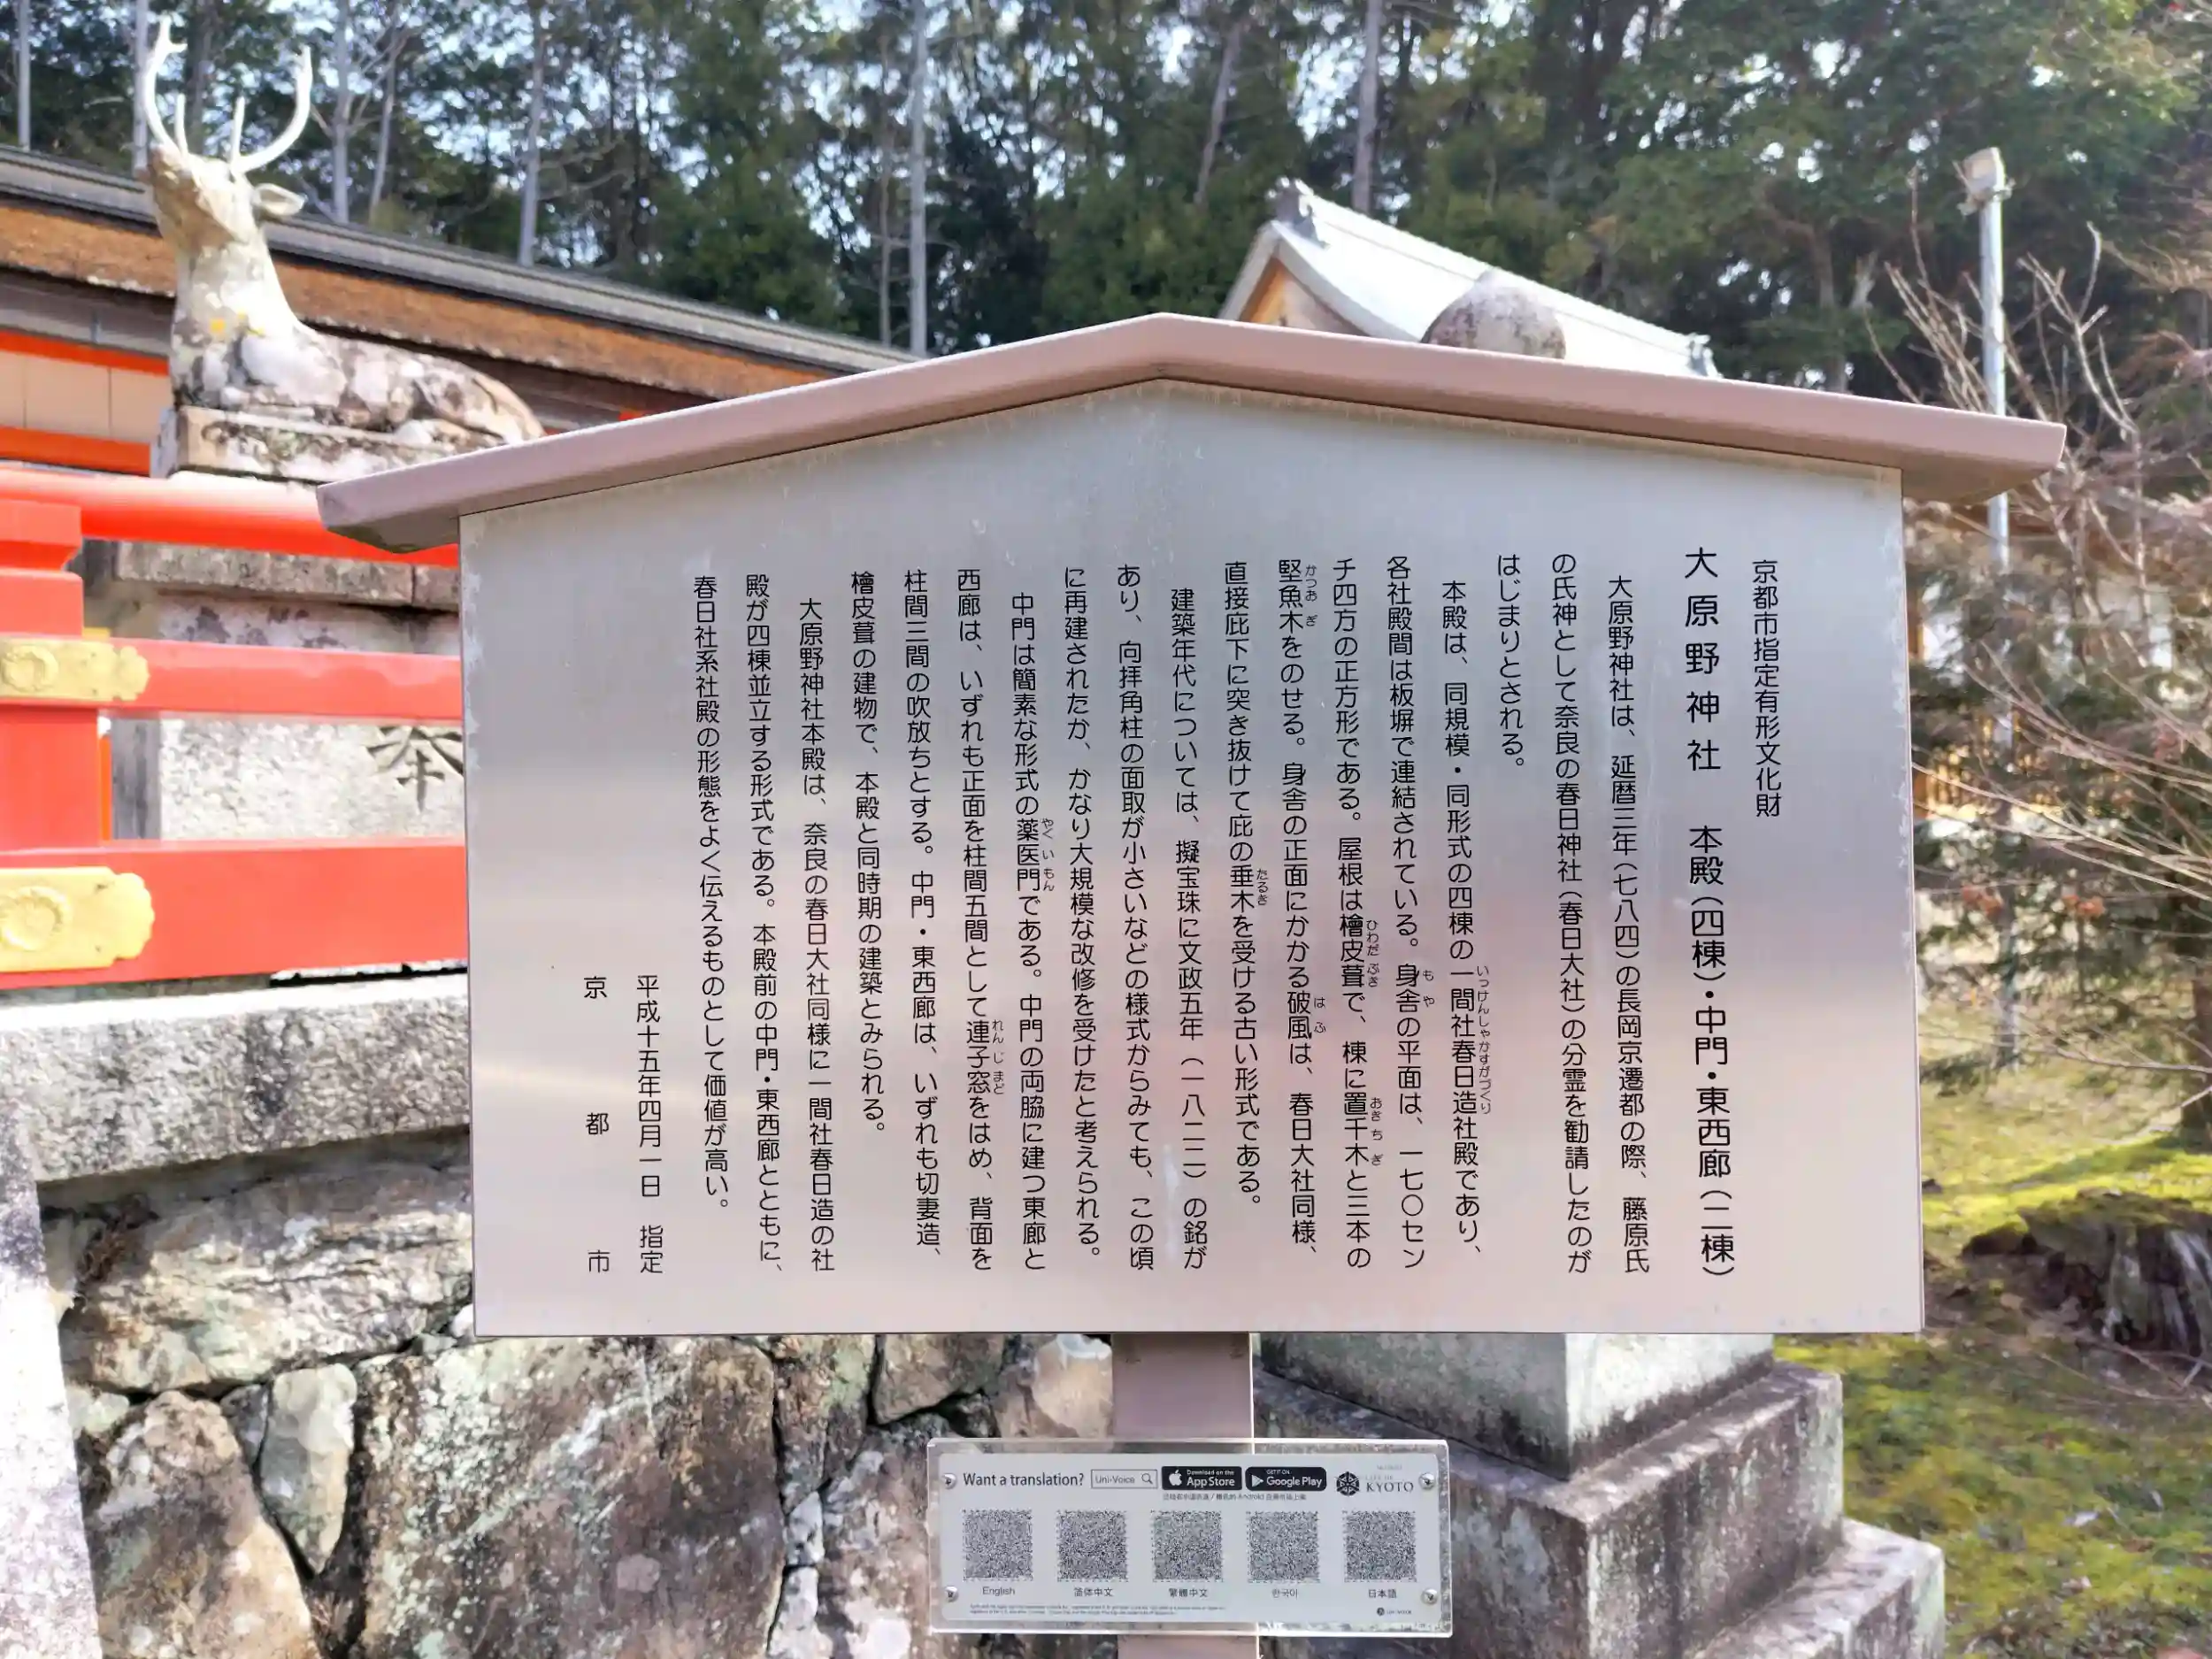 京都市指定有形文化財
大原野神社　本殿（四棟）・中門・東西廊（二棟）
大原野神社は、延暦三年（七八四）の長岡京遷都の際、藤原氏
の氏神として奈良の春日神社（春日大社）の分霊を勧請したのが
はじまりとされる。
本殿は、同規模・同形式の四棟の一間社春日造社殿であり、
いっけんしゃかすがづくり
各社殿間は板塀で連結されている。身舎の平面は、一七〇セン
もや
チ四方の正方形である。屋根は檜皮葺で、棟に置千木と三本の
ひわだぶき　おきちぎ
堅魚木をのせる。身舎の正面にかかる破風は、春日大社同様、
かつおぎ　はふ
直接庇下に突き抜けて庇の垂木を受ける古い形式である。
たるき
建築年代については、擬宝珠に文政五年（一八二二）の銘が
あり、向拝角柱の面取が小さいなどの様式からみても、この頃
に再建されたか、かなり大規模な改修を受けたと考えられる。
中門は簡素な形式の薬医門である。中門の両脇に建つ東廊と
やくいもん
西廊は、いずれも正面を柱間五間として連子窓をはめ、背面を
れんじまど
柱間三間の吹放ちとする。中門・東西廊は、いずれも切妻造、
檜皮葺の建物で、本殿と同時期の建築とみられる。
大原野神社本殿は、奈良の春日大社同様に一間社春日造の社
殿が四棟並立する形式である。本殿前の中門・東西廊とともに、
春日社系社殿の形態をよく伝えるものとして価値が高い。
平成十五年四月一日　指定
京都市
Want a translation?
Uni-Voice
Download on the
App Store
GET IT ON
Google Play
CITY OF
KYOTO
English
简体中文
繁體中文
한국어
日本語